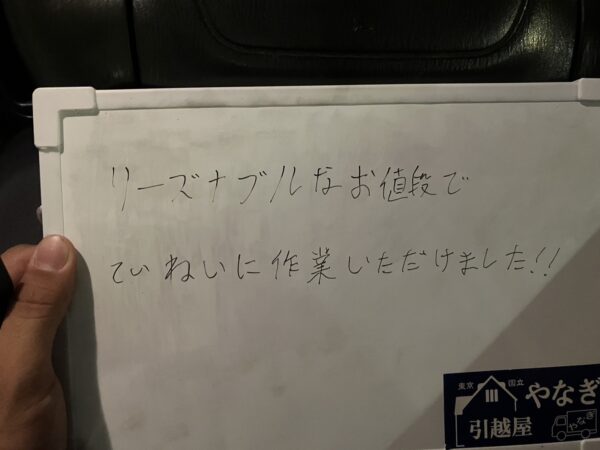 リーズナブルなお値段で
ていねいに作業いただけました!!
東京 国立 やなぎ
引越屋 やなぎ